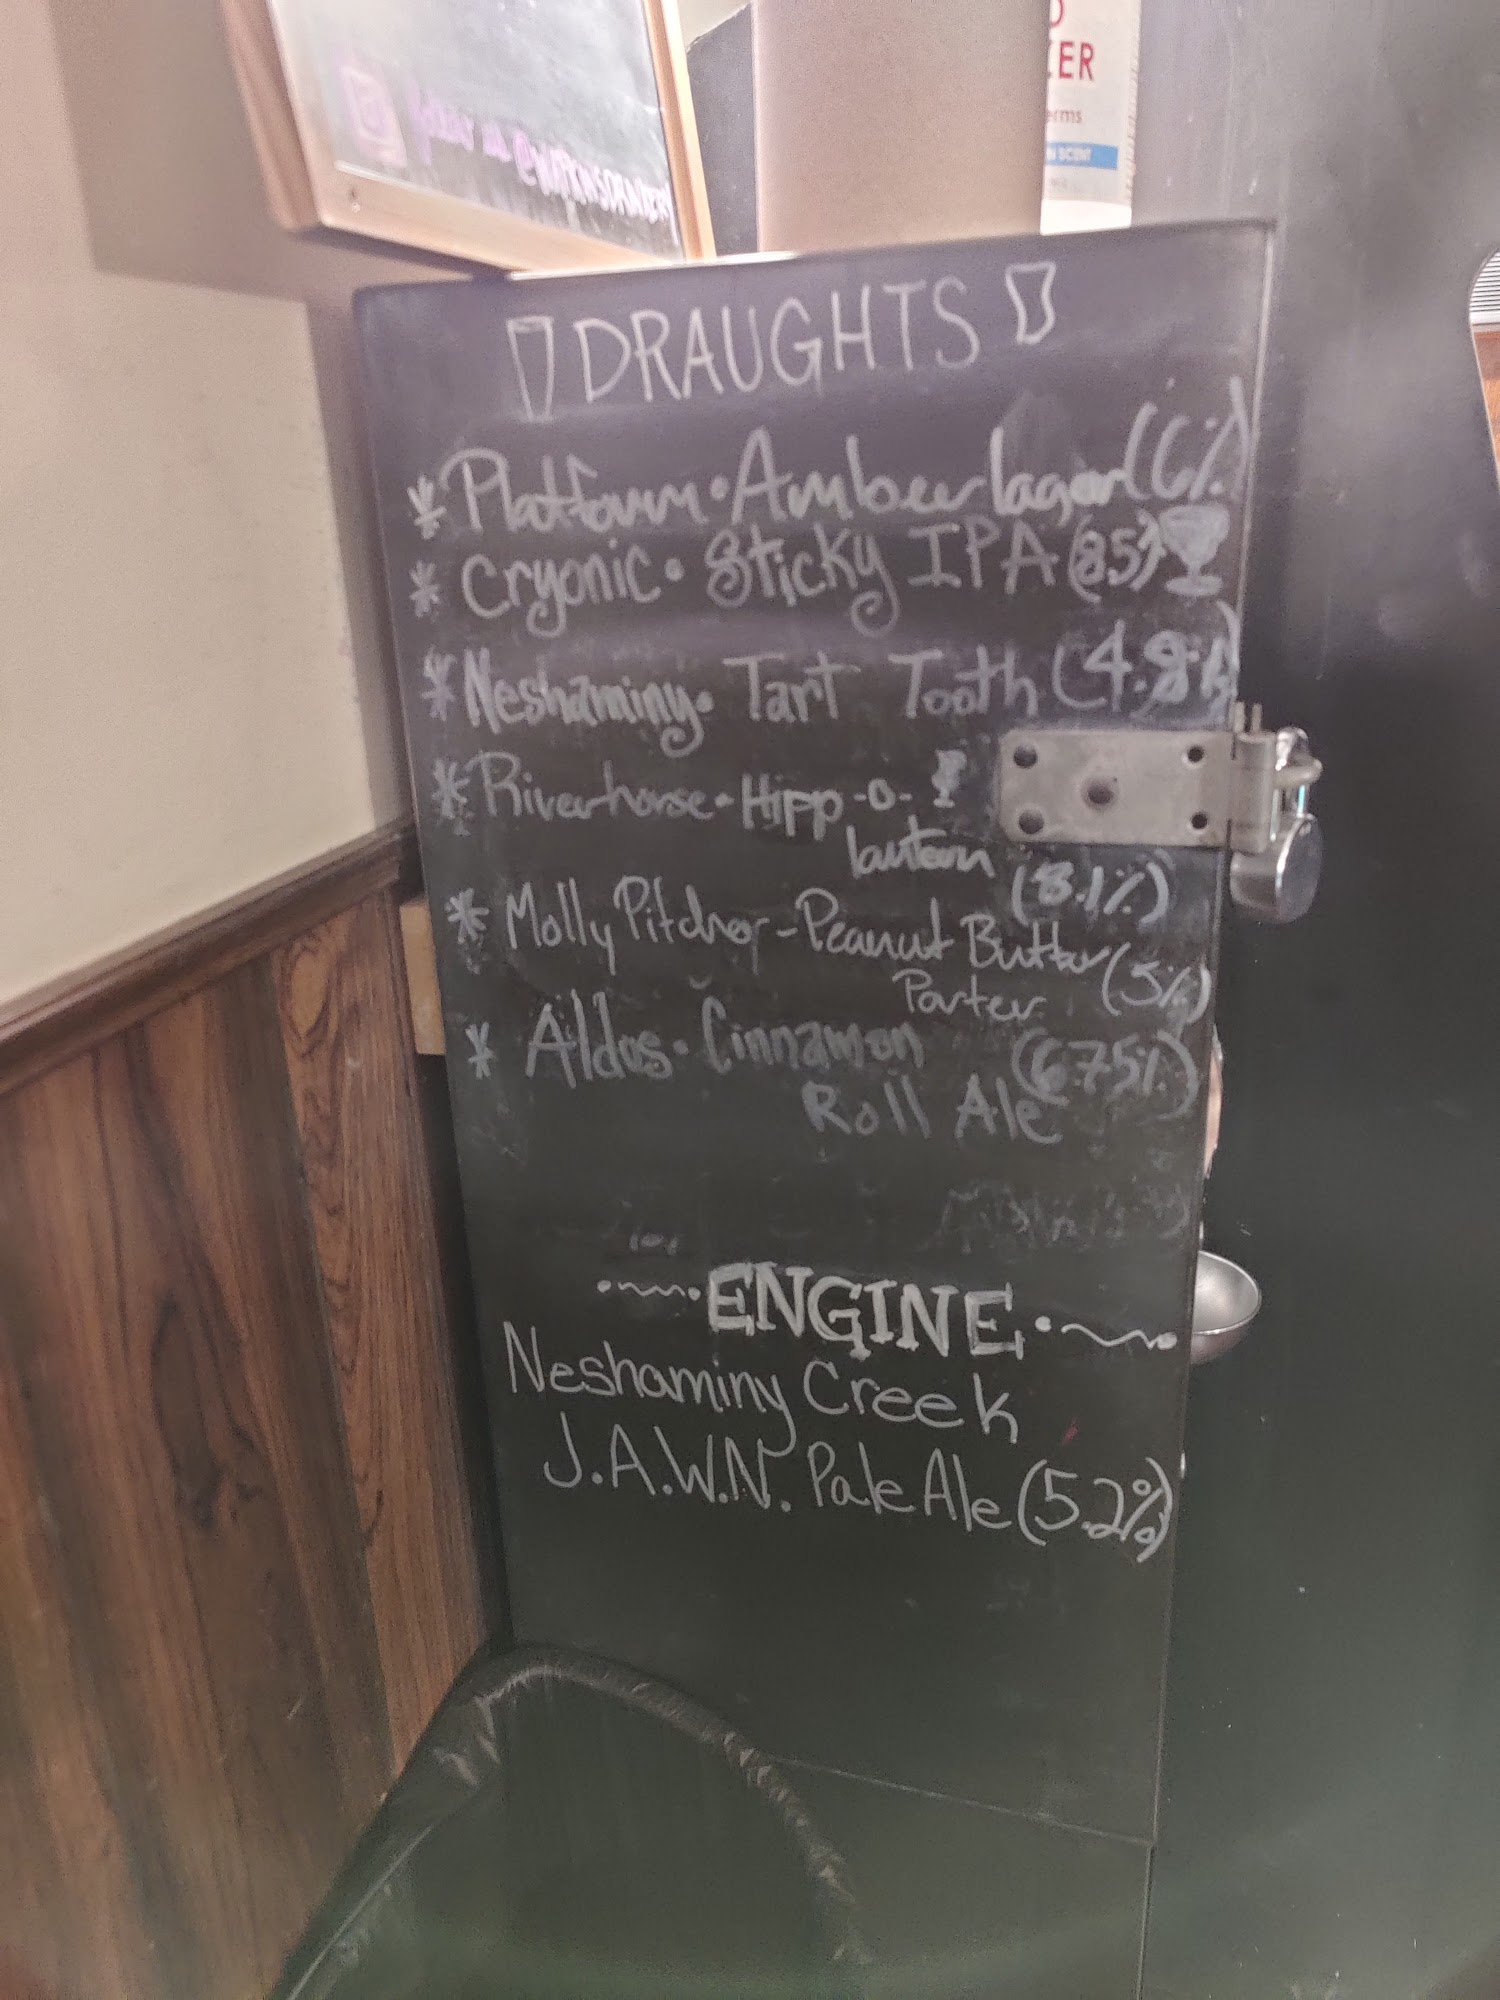 @WATKINSDRINKERY
ER
erms
SCENT
DRAUGHTS
* Platform • Amber lager (6%)
* Cryonic • Sticky IPA (8.5%)
* Neshaminy • Tart Tooth (4.8%)
* Riverhorse • Hipp -o-
lantern (8.1%)
* Molly Pitcher - Peanut Butter
Porter (5%)
* Aldus • Cinnamon (6.75%)
Roll Ale
ENGINE
Neshaminy Creek
J.A.W.N. Pale Ale (5.2%)